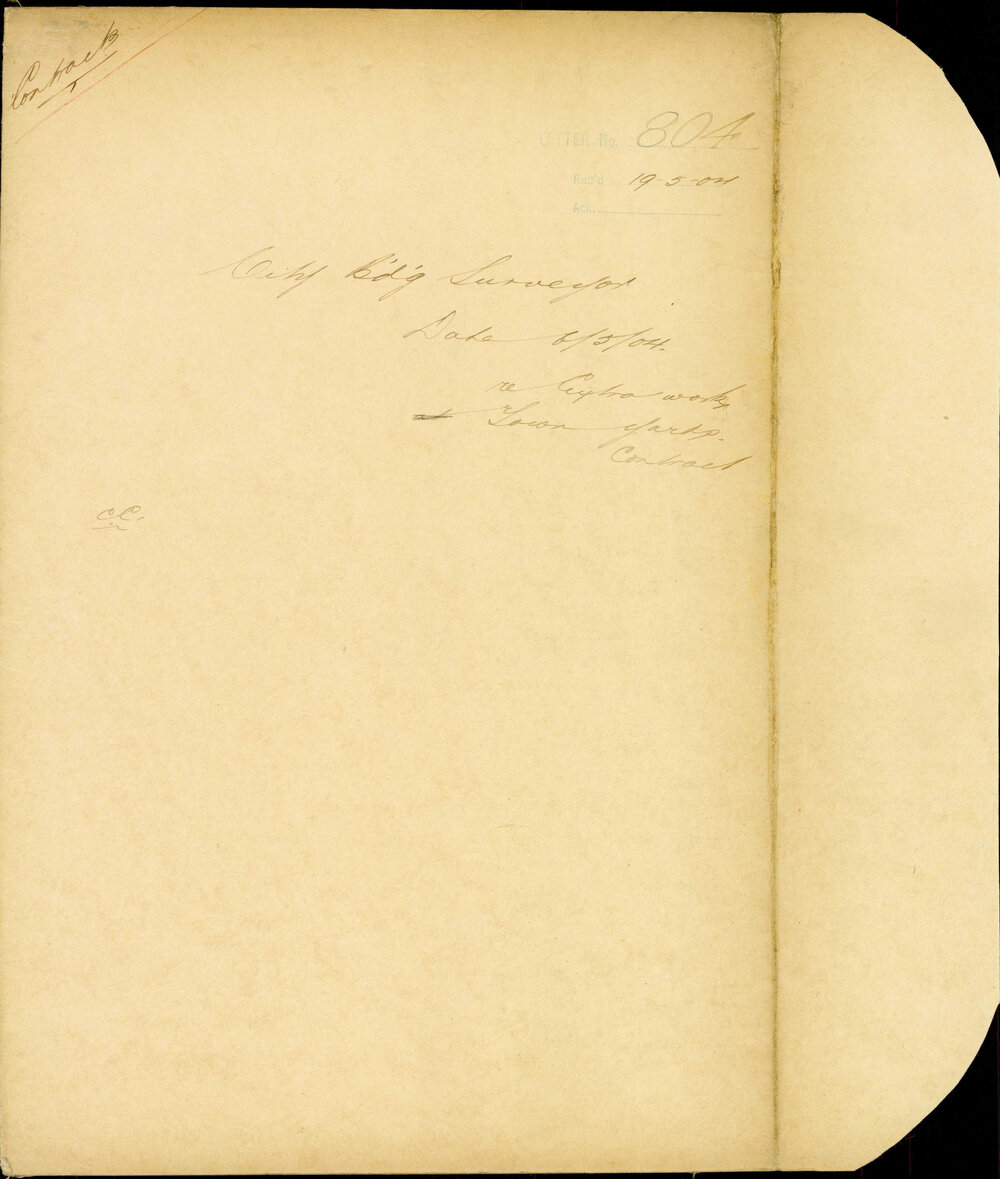 Contract
LETTER No. 804
Rec'd 19-5-04
Ack.
City B'd'g Surveyor
Date 6/5/04.
re Extra works
Town yards.
Contract
cC.